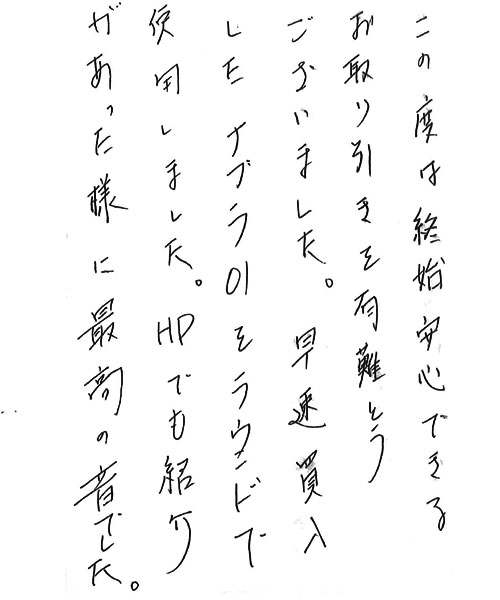 この度は終始安心できる
お取り引きを有難とう
ございました。早速買入
したナブラ01をラウンドで
使用しました。HPでも紹介
があった様に最高の音でした。